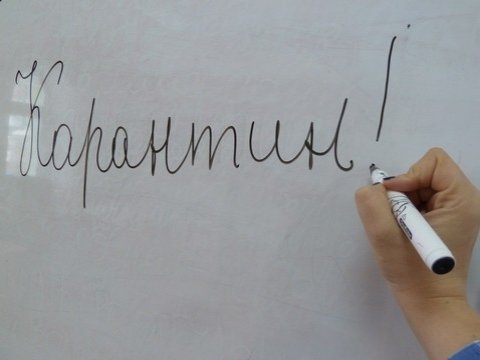 Карантин!